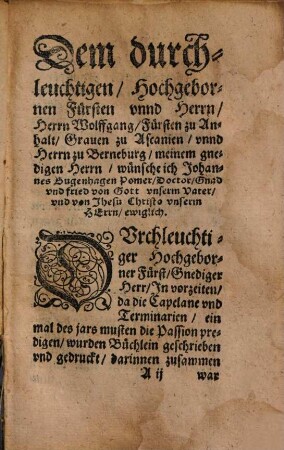 Dem durch-
leuchtigen / Hochgebor-
nen Fürsten vnnd Herrn /
Herrn Wolffgang / Fürsten zu An-
halt / Grauen zu Ascanien / vnnd
Herrn zu Berneburg / meinem gne-
digen Herrn / wünsche ich Johan-
nes Bugenhagen Pomer / Doctor / Gnad
vnd fried von Gott vnserm Vater /
vnd von Jhesu Christo vnserm
HErrn / ewiglich.
DVrchleuchti-
ger Hochgebor-
ner Fürst / Gnediger
Herr / In vorzeiten /
da die Capelane vnd
Terminarien / ein
mal des jars musten die Passion pre-
digen / wurden Büchlein geschrieben
vnd gedruckt / darinnen zusammen
A ij war